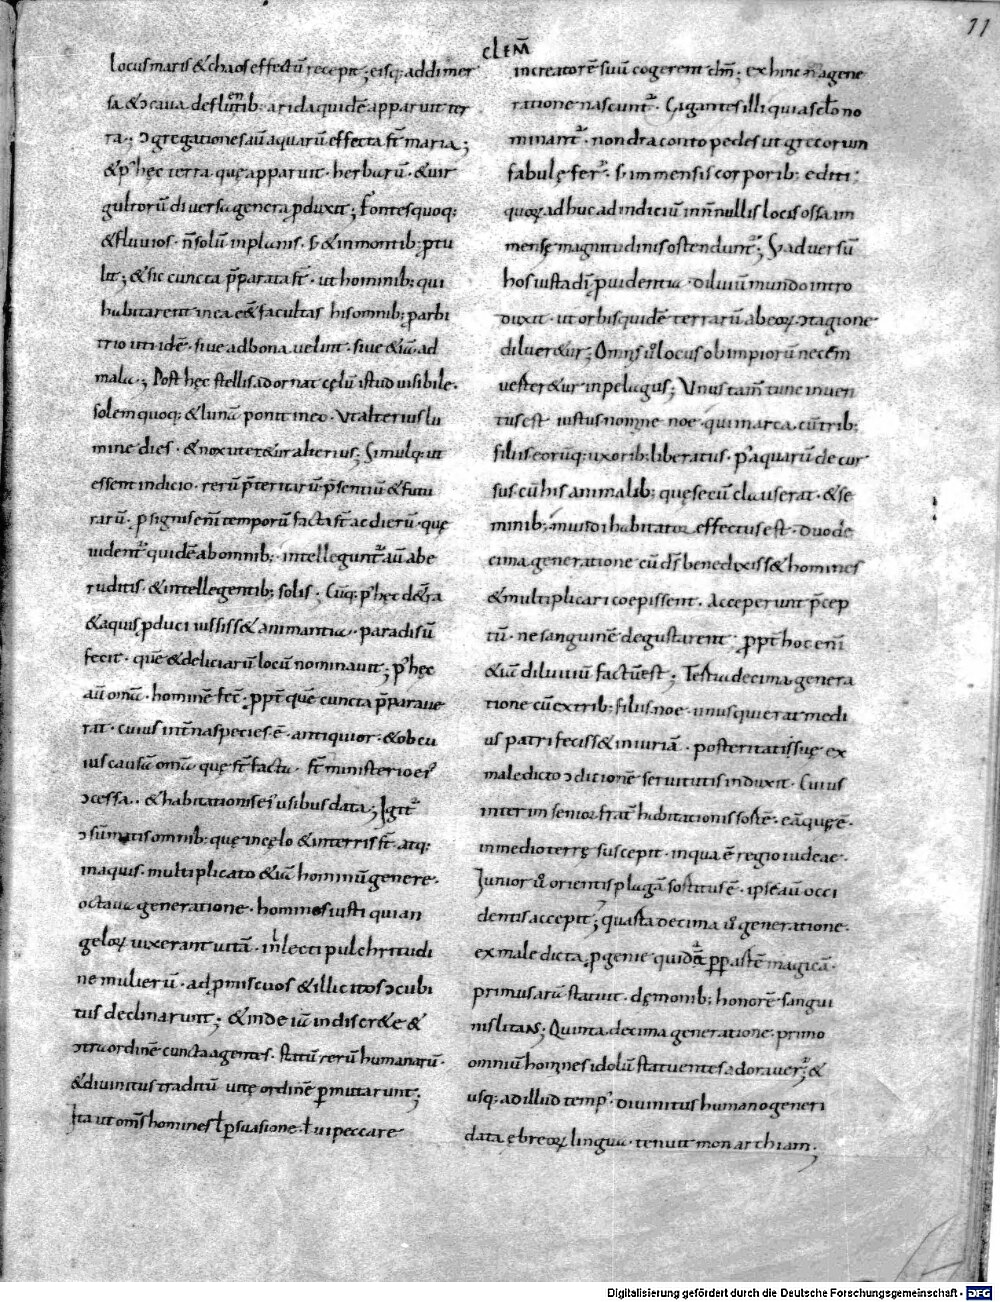 11
CLEM̄
locus maris & chaos effectū recepit; eisq; addimer
sa & ɔcaua defluentib; arida quidē apparuit ter
ra; ɔgregationes aū aquarū effecta sꞇ̄ maria;
& p̾ hęc terra quę apparuit · herbarū · & uir
gultorū diuersa genera ꝓduxit; fontes quoq;
& fluuios · n̄ solū in planis · s; & in montib; ꝓtu
lit; & sic cuncta p̄parata sꞇ̄ · ut hominib; qui
habitarent in ea eēt facultas his omnib; ꝓ arbi
trio uti idē · siue ad bona uelint · siue &iā ad
mala; Post hęc stellis adornat cęlū istud uisibile ·
solem quoq; & lunā ponit in eo · Ut alterius lu
mine dies · & nox utet&ur alterius; Simulq; ut
essent indicio · rerū p̄teritarū p̄sentiū & futu
rarū · ꝓ signis eni̅ temporū facta sꞇ̄ ac dierū · quę
uidentᷣ quidē ab omnib; · intelleguntᷣ aū ab e
ruditis · & intellegentib; solis; Cūq; p̾ hęc de t̄ra
& aquis ꝓduci iussiss& animantia · paradisū
fecit · quē & deliciarū locū nominauit; p̾ hęc
aū omā · hominē fec̄; ꝓpt̄ quē cuncta p̄paraue
rat · cuius int̄na species ē · antiquior · & ob cu
ius causā omā quę sꞇ̄ facta · sꞇ̄ ministerio ei᾽
ɔcessa · & habitationis ei᾽ usibus data; Igitᷣ
ɔsūmatis omnib; quę in cęlo & in terris sꞇ̄ · atq;
in aquis · multiplicato &iā hominū genere ·
octaua generatione · homines iusti qui an
gelorꝝ uixerant uitā · inlecti pulchritudi
ne mulierū · ad ꝓmiscuos & illicitos ɔcubi
tus declinarunt; & inde iā indiscr&e &
ɔtra ordinē cuncta agentes · statū rerū humanarū ·
& diuinitus traditū uitę ordinē ꝑmutarunt;
Ita ut om̄s homines ł ꝑsuasione · ł ui peccare
in creatorē suū cogerent dn̄m; ex hinc nona gene
ratione nascuntᷣ · Gigantes illi qui a sc̄lo no
minantᷣ · non draconto pedes ut grecorum
fabulę ferᷣ · s; immensis corporib; editi;
quorꝝ adhuc ad indiciū in n̄nullis locis ossa im
mensę magnitudinis ostenduntᷣ; S; aduersū
hos iusta dī ꝓuidentia · diluuiū mundo intro
duxit · ut orbis quidē terrarū ab eorꝝ ɔtagione
diluer&ur; Omnis ů locus ob impiorū necem
uerter&ur in pelagus; Unus tam̄ tunc inuen
tus est iustus nomine noe · qui in arca · cū trib;
filiis eorūq; uxorib; liberatus · p̾ aquarū decur
sus cū his animalib; quę secū clauserat · & se
minib; mundi habitator effectus est · Duode
cima generatione cū ds̄ benedixiss& homines
& multiplicari coepissent · acceperunt p̄cep
tū · ne sanguinē degustarent; ꝓpt̄ hoc eni̅
&iā diluuiū factū est; Tertia decima genera
tione cū ex trib; filiis noe · unus qui erat medi
us patri feciss& iniuriā · posteritati suę ex
maledicto ɔditionē seruitutis induxit · Cuius
interim senior frat̄ habitationis sortē · eā quę ē ·
in medio terrę suscepit · in qua ē regio iudeae ·
Iunior ů orientis plagā sortitus ē · ipse aū occi
dentis accepit; quarta decima ů generatione ·
ex maledicta ꝓgenie quidā ꝓp artē magicā ·
primus arā statuit · dęmonib; honorē sangui
nis litans; Quinta decima generatione · primo
omniū homines idolū statuentes adorauerᷣ; &
usq; ad illud temp᾽ · diuinitus humano generi
data ebreorꝝ lingua · tenuit monarchiam;
Digitalisierung gefördert durch die Deutsche Forschungsgemeinschaft - DFG